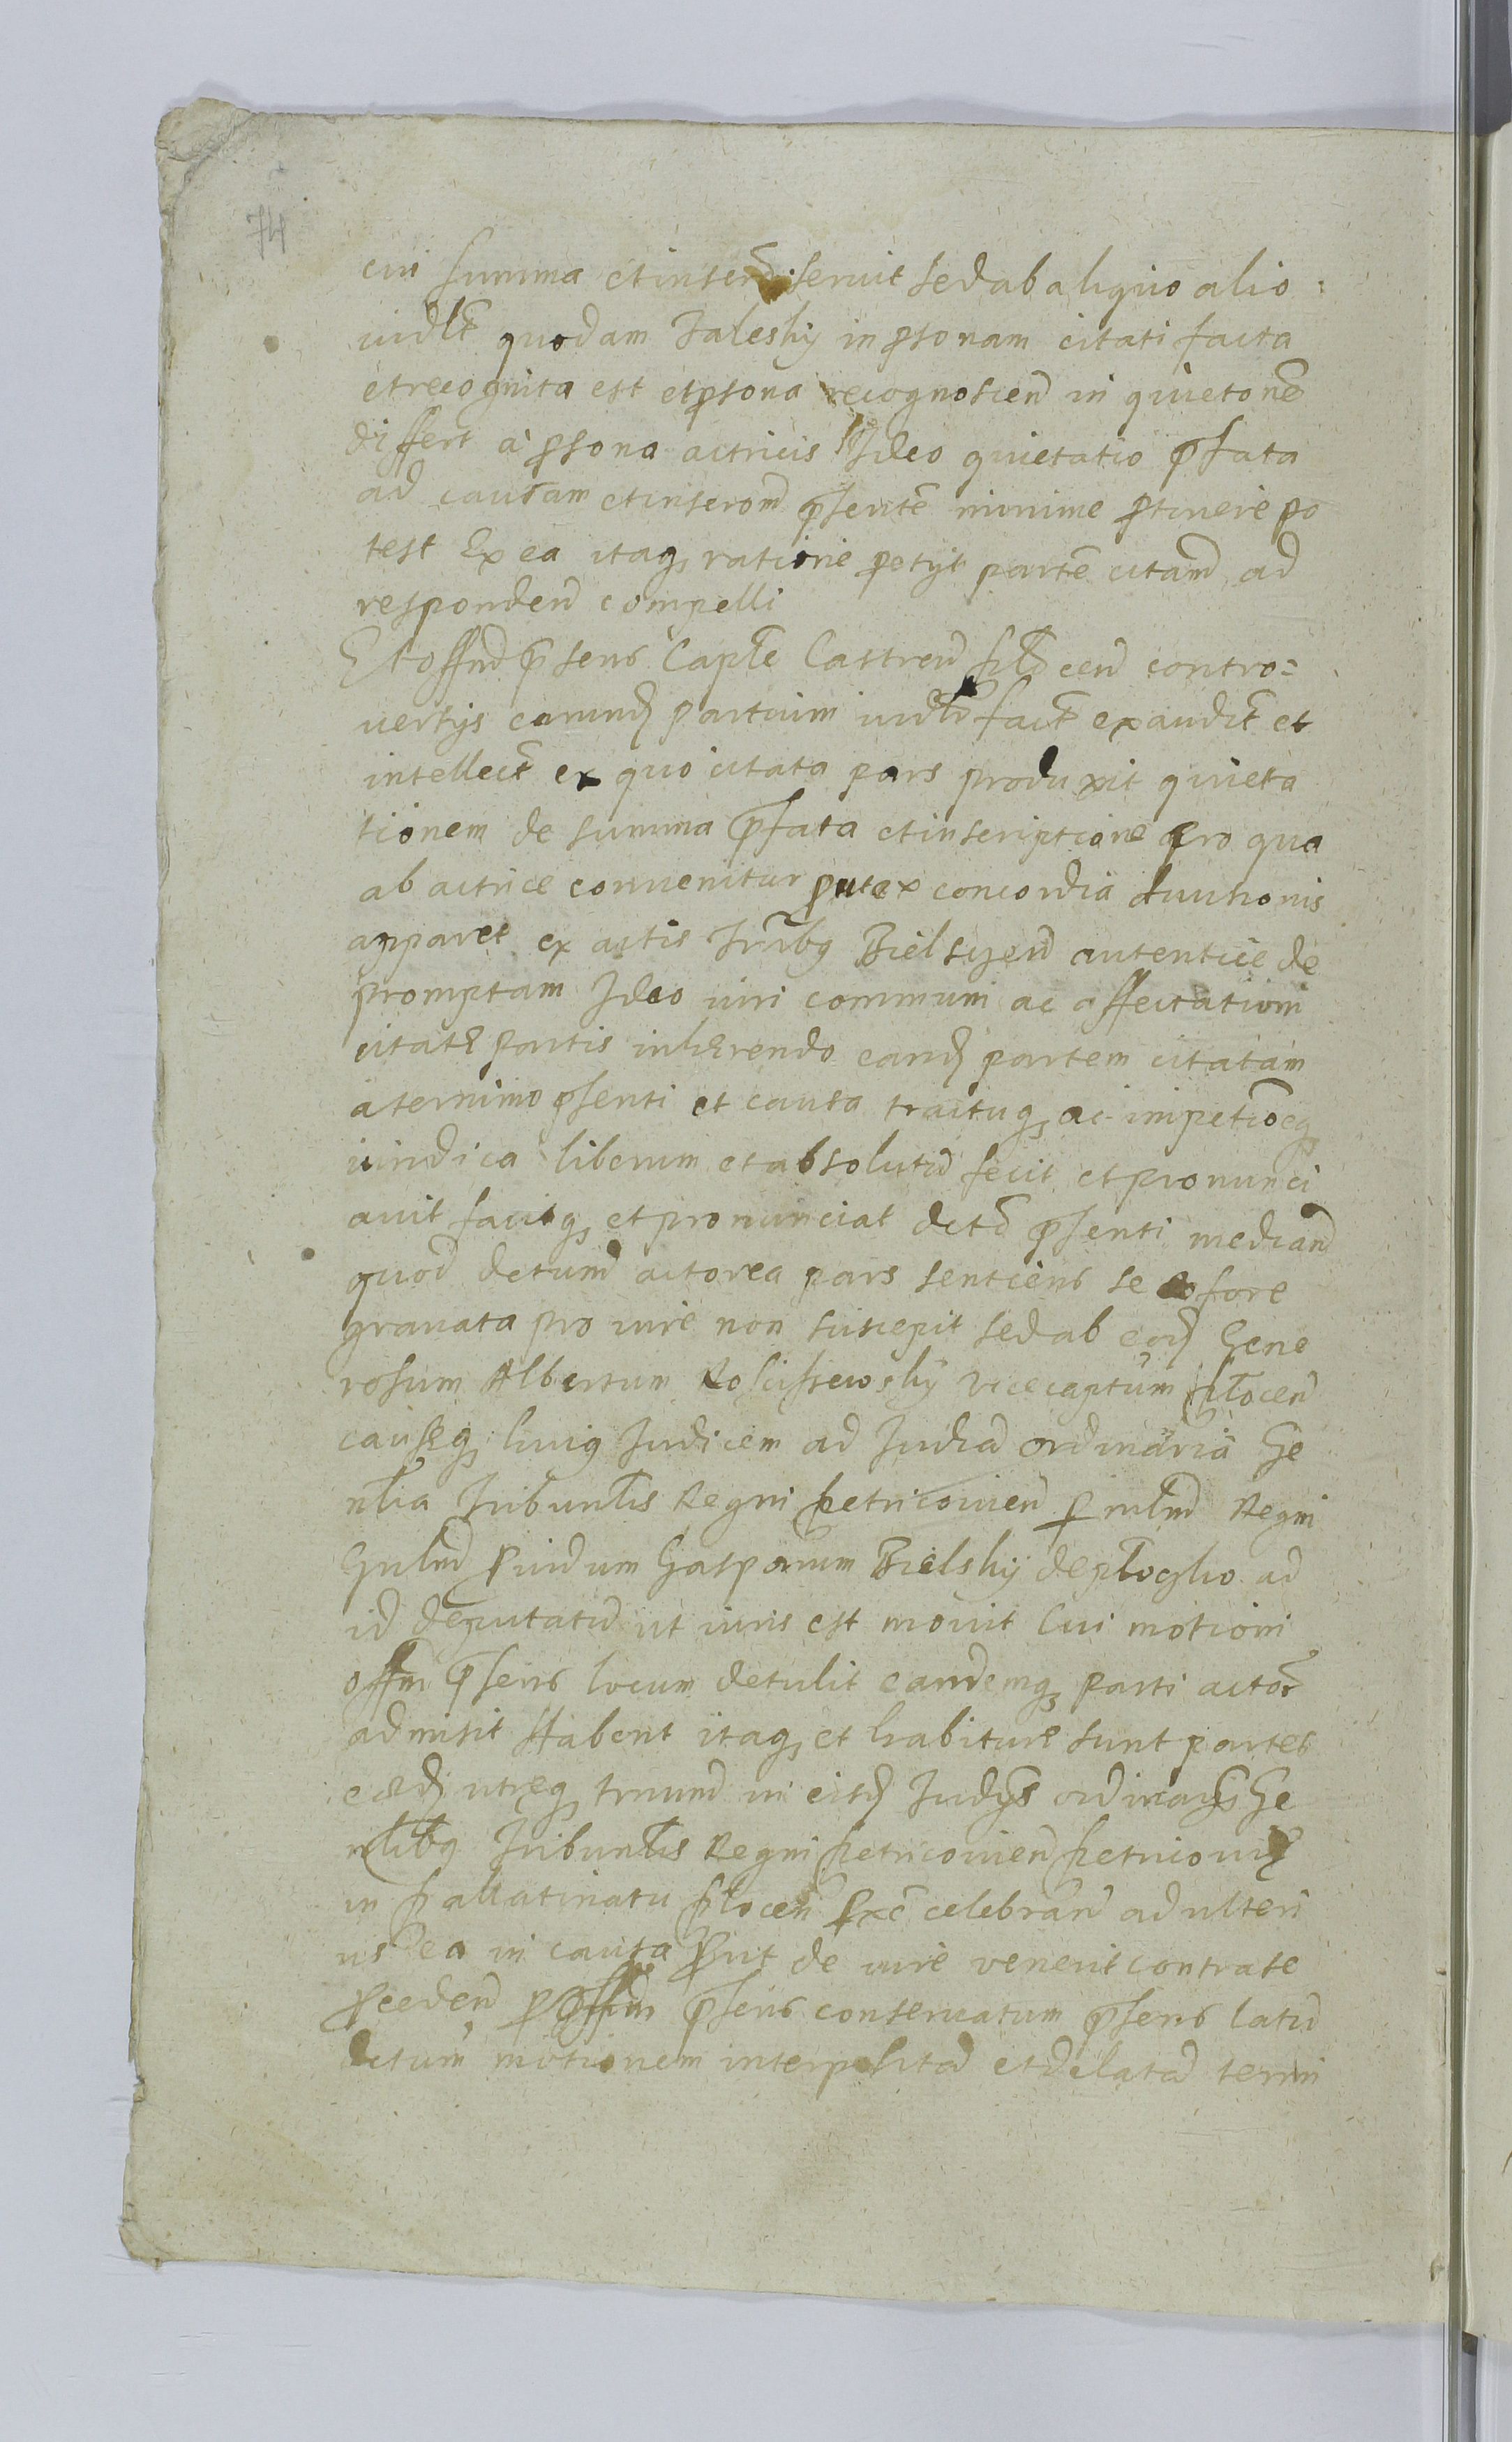 74
cui summa et inscr̃ seruit sed ab aliquo alio:
uidlt̃ quodam Zaleskÿ in psonam citati facta
et recognita est et psona recognoscen̄ in quietone
differt à psona actricis Ideo quietatio p̄fata
ad causam et inscrōm p̄sente minime ptinere po
test Ex ea itaq ratione petÿt parte citam̄ ad
responden̄ compelli
Et offm̄ p̄sens Caplē Castren̄ plocen̄ contro:
uersÿs earumd partium uidlt̃ fact̃ exaudit̃ et
intellect̃ ex quo citata pars produxit quieta
tionem de summa p̄fata et inscriptione pro qua
ab actrice conuenitur put ex concordia
apparet ex actis Bielscen̄ autentice de
promptam Ideo iuri communi ac affectationi
citatę partis inhęrendo eand partem citatam
a termino p̄senti et causa tractuq ac impetioēq
iuridica liberum et absolutū fecit et pronunci
auit facitq et pronunciat decto p̄senti median̄
quod decretum actorea pars sentiens se fore
grauata pro iure non suscepit sed ab eod Gene
rosum Albertum Rosciszewskÿ vicecaptum plocen̄
causęq huiq Judicem ad Judia ordinaria Ge
nlia Tribunlis Regni petricouien̄ p mlm̄ Regni
Gnlm̄ puidum Gasparum Bielskÿ de ad
id deputatū ut iuris est mouit Cui motioni
offm p̄sens locum detulit eandemq parti actor̄
admisit Habent itaq et habiture sunt partes
eęd utręq trnum̄ in eisd Judÿs ordinarÿs Ge
nlibq Tribunlis Regni petricouien̄ petricouię
in pallatinatu plocen̄ celebran̄ ad ulteri
us ea in causa put de iure venerit contrate
pceden̄ p offm p̄sens conseruatum p̄sens latū
dctum motionem interpositā et delatā termi